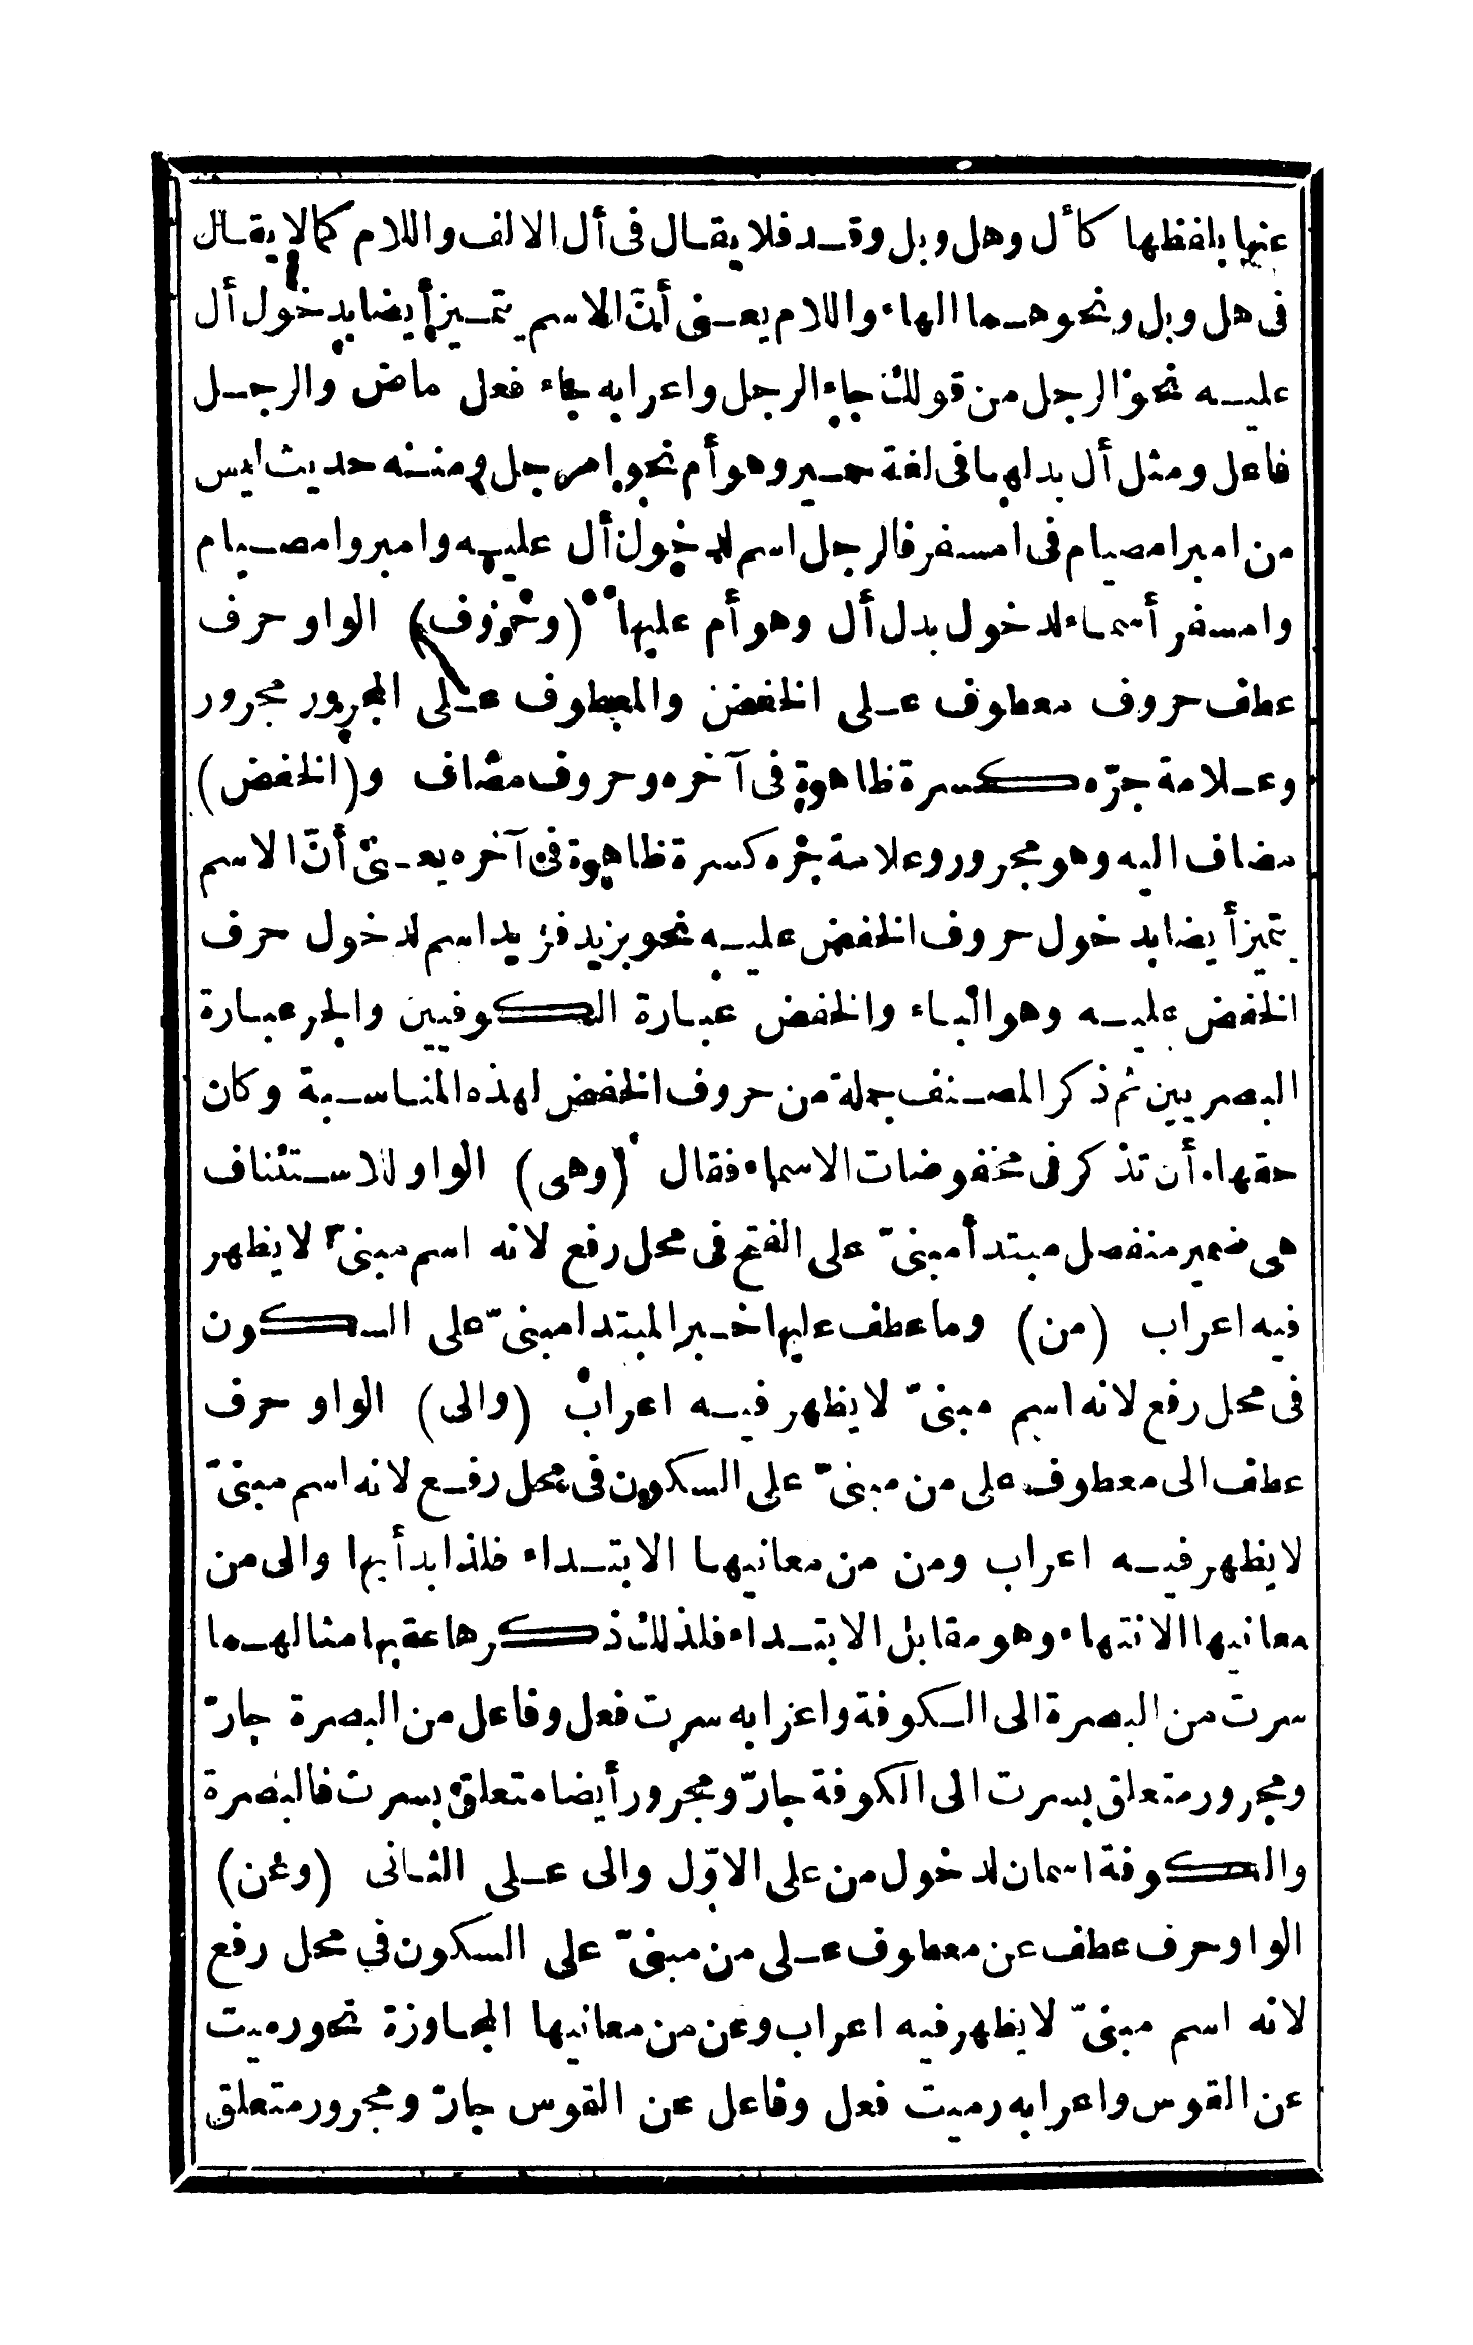 عنها بلفظها كأل وهل وبل وقد فلا يقال فى أل الالف واللام كما لا يقال
فى هل وبل ونحوهما الهاء واللام يعنى أنّ الاسم يتميز أيضا بدخول أل
عليه نحو الرجل من قولك جاء الرجل واعرابه جاء فعل ماض والرجل
فاعل ومثل أل بدلها فى لغة حمير وهو أم نحو امرجل ومنه حديث ليس
من امبر امصيام فى امسفر فالرجل اسم لدخول أل عليه وامبر وامصيام
وامسفر أسماء لدخول بدل أل وهو أم عليها (وحروف) الواو حرف
عطف حروف معطوف على الخفض والمعطوف على المجرور مجرور
وعلامة جرّه كسرة ظاهرة فى آخره وحروف مضاف و(الخفض)
مضاف اليه وهو مجرور وعلامة جره كسرة ظاهرة فى آخره يعنى أنّ الاسم
يتميز أيضا بدخول حروف الخفض عليه نحو بزيد فزيد اسم لدخول حرف
الخفض عليه وهو الباء والخفض عبارة الكوفيين والجر عبارة
البصريين ثم ذكر المصنف جملة من حروف الخفض لهذه المناسبة وكان
حقها أن تذكر فى مخفوضات الاسماء فقال (وهى) الواو للاستئناف
هى ضمير منفصل مبتدأ مبنىّ على الفتح فى محل رفع لانه اسم مبنىّ لا يظهر
فيه اعراب (من) وما عطف عليها خبر المبتدا مبنىّ على السكون
فى محل رفع لانه اسم مبنىّ لا يظهر فيه اعراب (والى) الواو حرف
عطف الى معطوف على من مبنىّ على السكون فى محل رفع لانه اسم مبنىّ
لا يظهر فيه اعراب ومن من معانيها الابتداء فلذا بدأ بها والى من
معانيها الانتهاء وهو مقابل الابتداء فلذلك ذكرها عقبها مثالهما
سرت من البصرة الى الكوفة واعرابه سرت فعل وفاعل من البصرة جارّ
ومجرور متعلق بسرت الى الكوفة جارّ ومجرور أيضا متعلق بسرت فالبصرة
والكوفة اسمان لدخول من على الاوّل والى على الثانى (وعن)
الواو حرف عطف عن معطوف على من مبنىّ على السكون في محل رفع
لانه اسم مبنىّ لا يظهر فيه اعراب وعن من معانيها المجاوزة نحو رميت
عن القوس واعرابه رميت فعل وفاعل عن القوس جارّ ومجرور متعلق